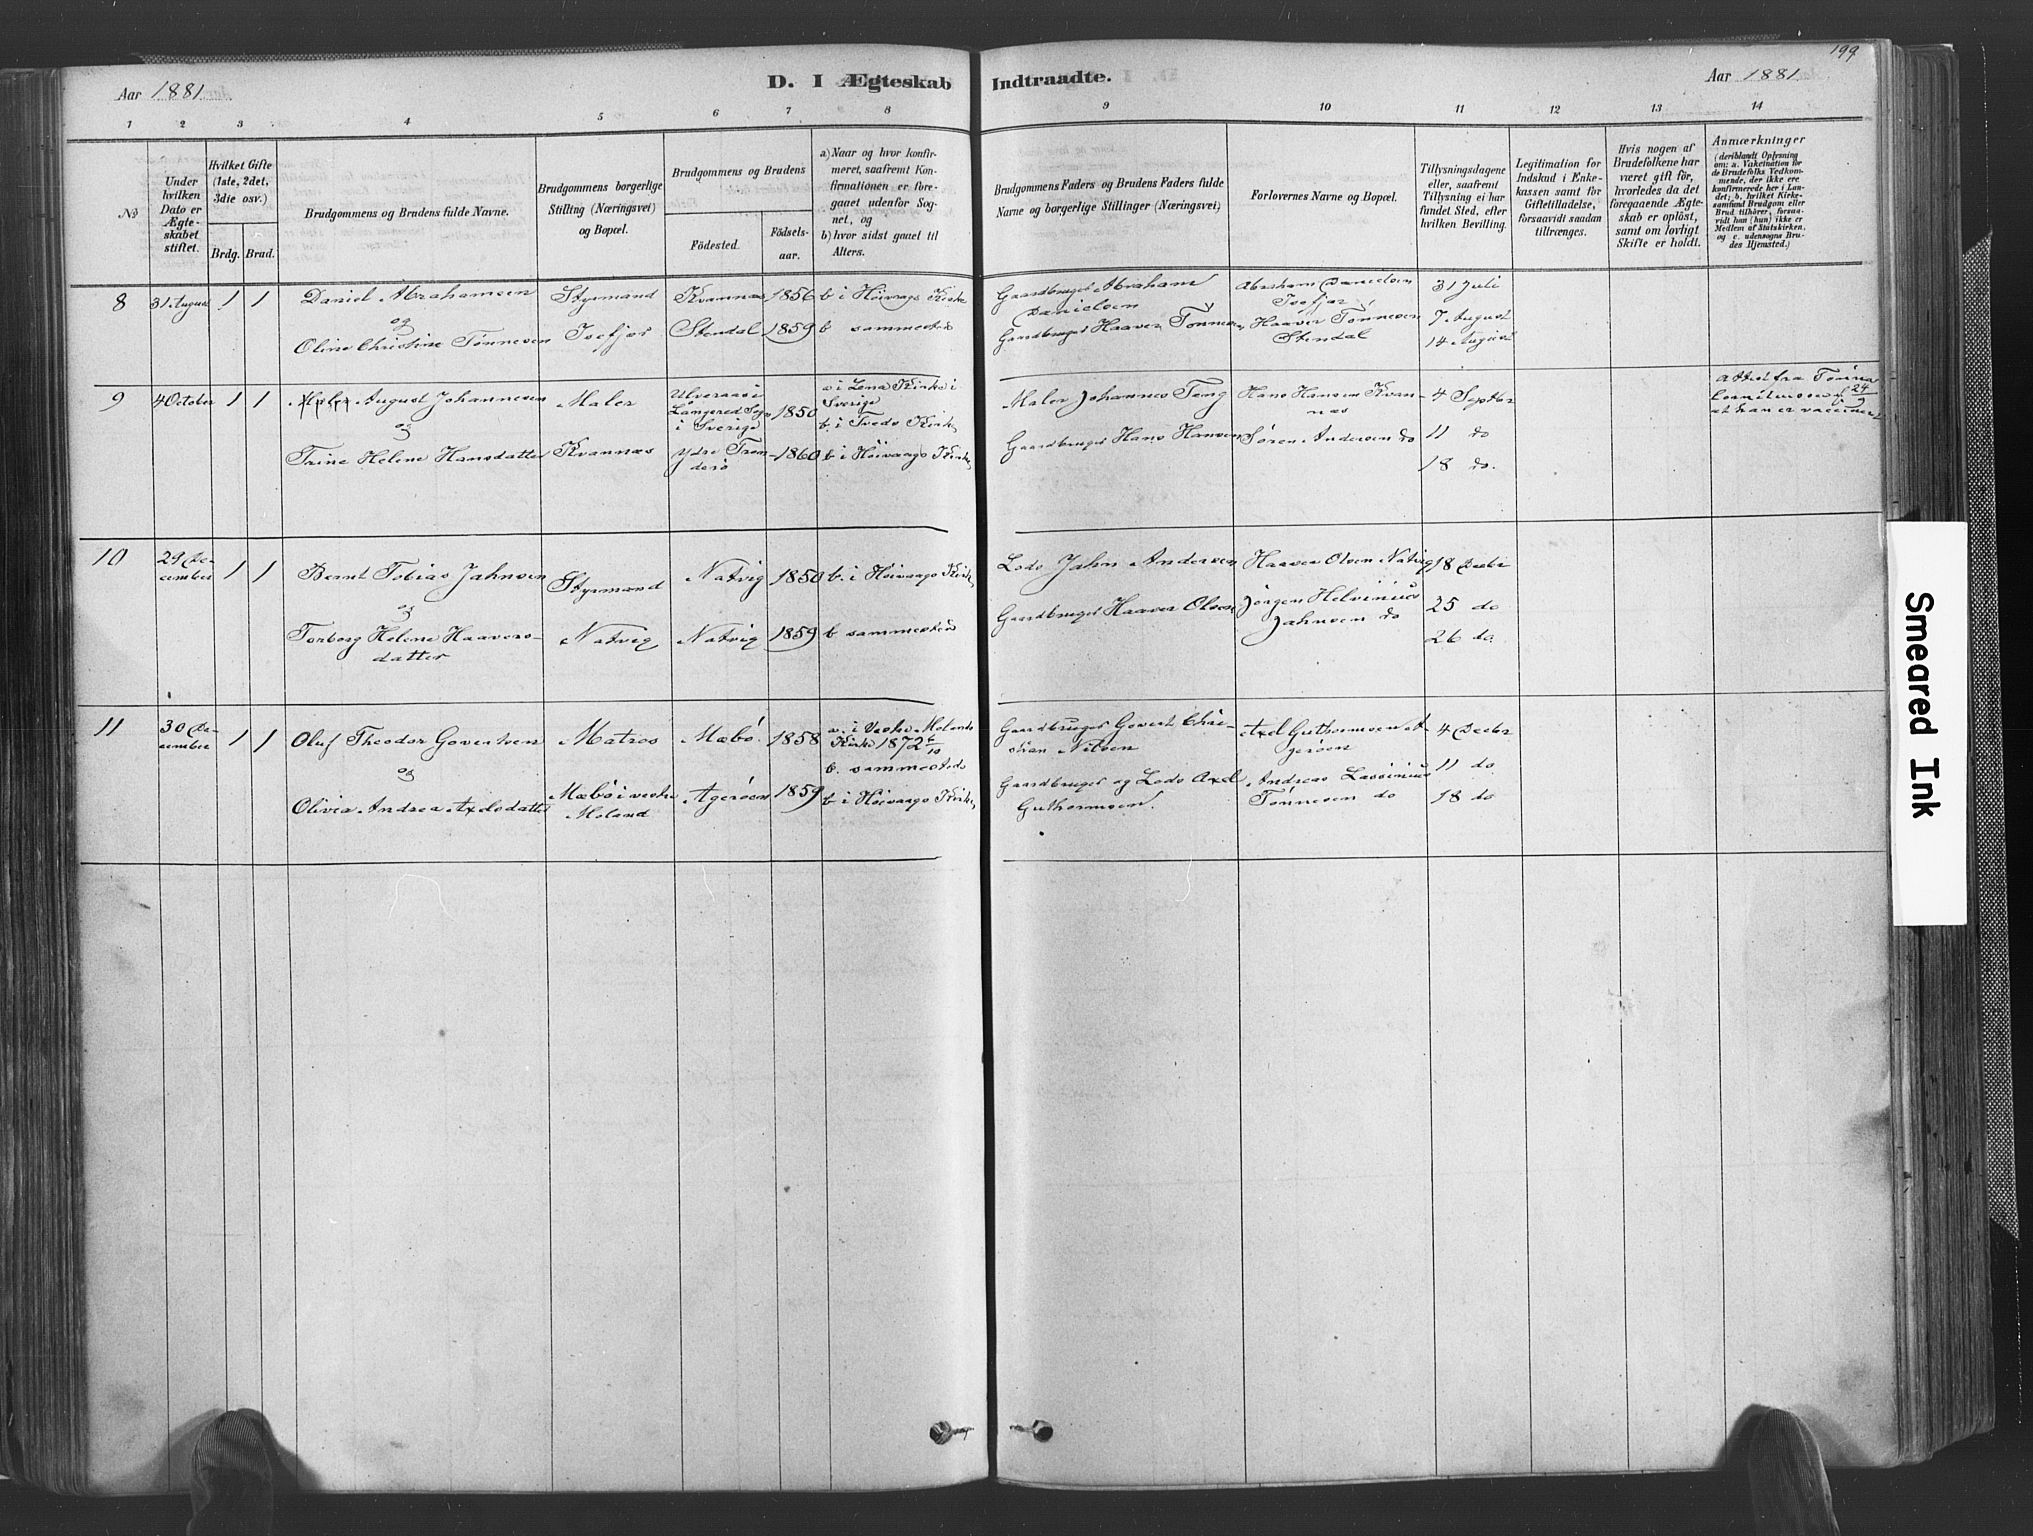 199
Aar 1881
D. I Ægteskab Indtraadte.
Aar 1881
1 2 3 4 5 6 7 8 9 10 11 12 13 14
No
Under
hvilken
Dato er
Ægte-
skabet
stiftet.
Hvilket Gifte
(1ste, 2det,
3die osv.)
Brdg. Brud.
Brudgommens og Brudens fulde Navne.
Brudgommens borgerlige
Stilling (Næringsvei)
og Bopæl.
Brudgommens og Brudens
Födested.
Födsels-
aar.
a) Naar og hvor konfir-
meret, saafremt Kon-
firmationen er fore-
gaaet udenfor Sog-
net, og
b) hvor sidst gaaet til
Alters.
Brudgommens Faders og Brudens Faders fulde
Navne og borgerlige Stillinger (Næringsvei)
Forlovernes Navne og Bopæl.
Tillysningsdagene
eller, saafremt
Tillysning ei har
fundet Sted, efter
hvilken Bevilling.
Legitimation for
Indskud i Enke-
kassen samt for
Giftetilladelse,
forsaavidt saadan
tiltrænges.
Hvis nogen af
Brudefolkene har
været gift för,
hvorledes da det
foregaaende Ægte-
skab er oplöst,
samt om lovligt
Skifte er holdt.
Anmærkninger
(deriblandt Oplysning
om: a. Vakcination for
de Brudefolks Vedkom-
mende, der ikke ere
konfirmerede her i Lan-
det; b. hvilket Kirke-
samfund Brudgom eller
Brud tilhörer, forsaa-
vidt han (hun) ikke er
Medlem af Statskirken,
og c. udensogns Bru-
des Hjemsted.)
8
31 August
1 1
Daniel Abrahamsen
og
Oline Christine Tønnesen
Styrmand
Isefjær
Kvannæs
Stendal
1856
1859
b i Høivaags Kirke
b sammesteds
Gaardbruger Abraham
Danielsen
Gaardbruger Haaver Tønnesen
Abraham Danielsen
Isefjær
Haaver Tønnesen
Stendal
31 Juli
7 August
14 August
9
4 October
1 1
August Johannesen
og
Trine Helene Hansdatter
Maler
Kvannæs
Ulveraas i
Langered Sogn
i Sverige
Ydre Trøm-
derö
1850
1860
a i Lena Kirke i
Sverige
b. i Tveds Kirke
b i Høivaags Kirke
Maler Johannes Teng
Gaardbruger Hans Hansen
Hans Hansen Kvan-
næs
Søren Andersen do
4 Septbr
11 do
18 do.
Attest fra Tønnes
24/9
at han er vaccineret
10
29 De-
cember
1 1
Bernt Tobias Jahnsen
og
Torborg Helene Haavers-
datter
Styrmand
Natvig
Natvig
Natvig
1850
1859
b. i Høivaags Kirke
b sammesteds
Lods Jahn Andersen
Gaardbruger Haaver Olsen
Haaver Olsen Natvig
Jörgen Helvinius
Jahnsen do
18 Decbr
25 do
26 do
11
30 De-
cember
1 1
Oluf Theodor Govertsen
og
Olivia Andrea Axelsdatter
Matros
Mæbö i vestre
Moland
Mæbö
Agerøen
1858
1859
a. i Vestre Molands
Kirke 1872 6/10
b. sammesteds
b i Høivaags Kirke
Gaardbruger Govert Chri-
stian Nilsen
Gaardbruger og Lods Axel
Guthormsen.
Axel Guthormsen A-
gerøen
Andreas Lassinius
Tønnesen do
4 Decbr
11 do
18 do
Smeared Ink